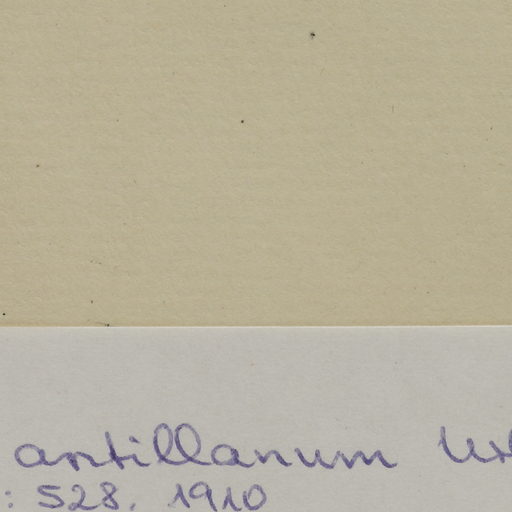 antillanum
: 528. 1910